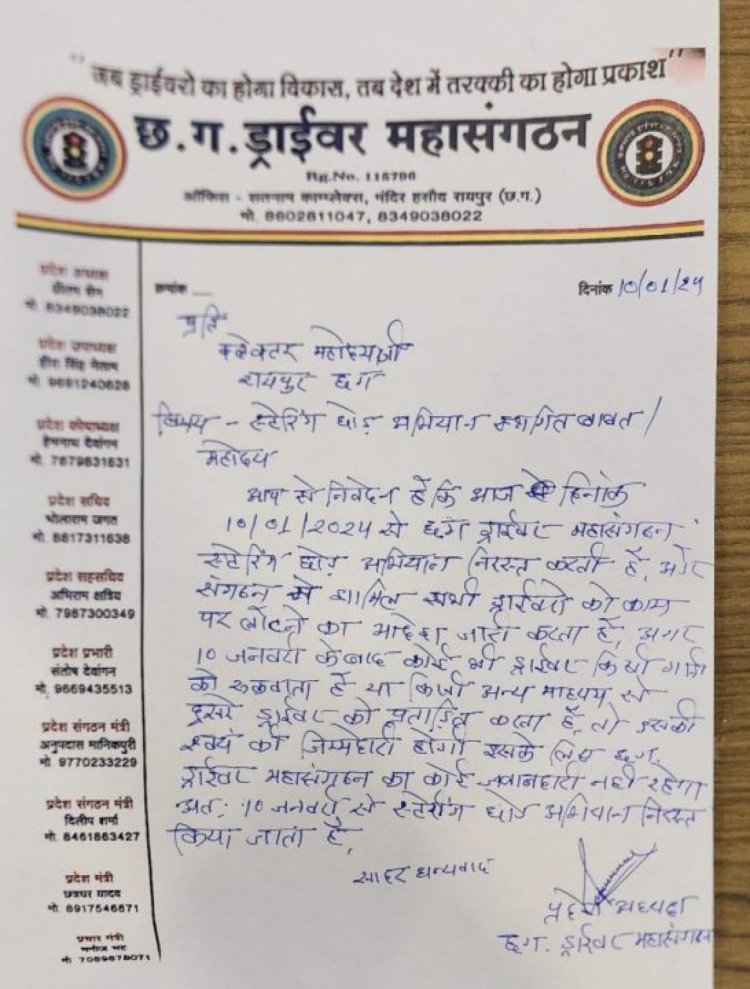 "जब ड्राईवरो का होगा विकास, तब देश में तरक्की का होगा प्रकाश"
छ.ग.ड्राईवर महासंगठन
Rg.No. 115796
ऑफिस - सतनाम काम्प्लेक्स, मंदिर हसौद रायपुर (छ.ग.)
मो. 8602811047, 8349038022
प्रदेश अध्यक्ष
प्रीतम सेन
मो. 8349038022
प्रदेश उपाध्यक्ष
हीरा सिंह नेताम
मो. 9691240628
प्रदेश कोषाध्यक्ष
हेमनाथ देवांगन
मो. 7879831631
प्रदेश सचिव
भोलाराम जगत
मो. 8817311638
प्रदेश सहसचिव
अभिराम क्षत्रिय
मो. 7987300349
प्रदेश प्रभारी
संतोष देवांगन
मो. 9669435513
प्रदेश संगठन मंत्री
अनुपदास मानिकपुरी
मो. 9770233229
प्रदेश संगठन मंत्री
दिलीप शर्मा
मो. 8461863427
प्रदेश मंत्री
छत्रधर यादव
मो. 8917546671
प्रचार मंत्री
मनीज भट
मो. 7089878071
क्रमांक ....
दिनांक 10/01/24
प्रति
कलेक्टर महोदय जी
रायपुर छग
विषय - स्टेरिंग छोड़ अभियान स्थगित बाबत/
महोदय
आप से निवेदन है कि आज दिनांक
10/01/2024 से छग ड्राईवर महासंगठन
स्टेरिंग छोड़ अभियान निरस्त करती है, और
संगठन मे शामिल सभी ड्राईवरो को काम
पर लौटने का आदेश जारी करता है, अगर
10 जनवरी के बाद कोई भी ड्राईवर किसी गाड़ी
को रुकवाता है या किसी अन्य माध्यय से
दुसरे ड्राईवर को प्रताड़ित करता है, तो उसकी
स्वयं की जिम्मेदारी होगी इसके लिए छग.
ड्राईवर महासंगठन का कोई जवाबदारी नही रहेगा
अत: 10 जनवरी से स्टेरींग छोड़ अभियान निरस्त
किया जाता है,
सादर धन्यवाद
प्रदेश अध्यक्ष
छग. ड्राईवर महासंगठन